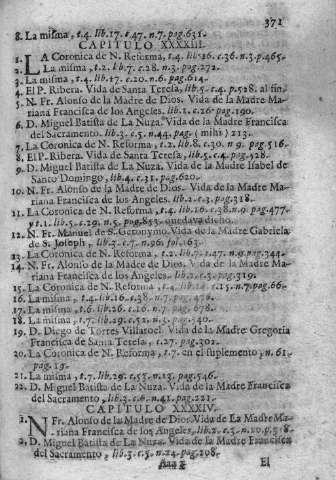 371
8. La misma, t.4. lib.17. c.47. n.7. pag.631.
CAPITULO XXXXIII.
1. LA Coronica de N. Reforma, t.4. lib.16. c.36. n.3. p.465.
2. La misma, t.2. lib.7. c.28. n.3. pag.272.
3. La misma, t.4. lib.17. c.20. n.6. pag.614.
4. El P. Ribera. Vida de Santa Teresa, lib.5. c.4. p.528. al fin.
5. N. Fr. Alonso de la Madre de Dios. Vida de la Madre Ma-
riana Francisca de los Angeles. lib.1. c.26. pag.190.
6. D. Miguel Batista de La Nuza. Vida de la Madre Francisca
del Sacramento. lib.3. c.5. n.44. pag. (mihi) 213.
7. La Coronica de N. Reforma, t.2. lib.8. c.30. n.9. pag.516.
8. El P. Ribera. Vida de Santa Teresa, lib.5. c.4. pag.528.
9. D. Miguel Batista de La Nuza. Vida de la Madre Isabel de
Santo Domingo, lib.4. c.31. pag.620.
10. N. Fr. Alonso de la Madre de Dios. Vida de la Madre Ma-
riana Francisca de los Angeles. lib.2. c.3. pag.318.
11. La Coronica de N. Reforma, t.4. lib.16. c.38. n.9. pag.477.
y t.1. lib.5. c.29. n.5. pag.853. queda ya dicho.
12. N. Fr. Manuel de S. Geronymo. Vida de la Madre Gabriela
de S. Joseph, lib.3. c.7. n.96. fol.163.
13. La Coronica de N. Reforma, t.2. lib.7. c.47. n.9. pag.344.
14. N. Fr. Alonso de la Madre de Dios. Vida de la Madre Ma-
riana Francisca de los Angeles. lib.2. c.3. pag.319.
15. La Coronica de N. Reforma, t.4. lib.14. c.13. n.7. pag.66.
16. La misma, t.4. lib.16. c.38. n.7. pag.476.
17. La misma, t.6. lib.26. c.16. n.7. pag.678.
18. La misma, t.7. lib.29. c.52. n.3. pag.540.
19. D. Diego de Torres Villaroel. Vida de la Madre Gregoria
Francisca de Santa Teresa, c.27. pag.302.
20. La Coronica de N. Reforma, t.7. en el suplemento, n.61.
pag.19.
21. La misma, t.7. lib.29. c.53. n.13. pag.546.
22. D. Miguel Batista de La Nuza. Vida de la Madre Francisca
del Sacramento, lib.3. c.6. n.41. pag.221.
CAPITULO XXXXIV.
1. N Fr. Alonso de la Madre de Dios. Vida de La Madre Ma-
riana Francisca de los Angeles, lib.2. c.3. n.10. p.318.
2. D. Miguel Batista de La Nuza. Vida de la Madre Francisca
del Sacramento, lib.3. c.5. n.24. pag.208.
Aaa 2 El